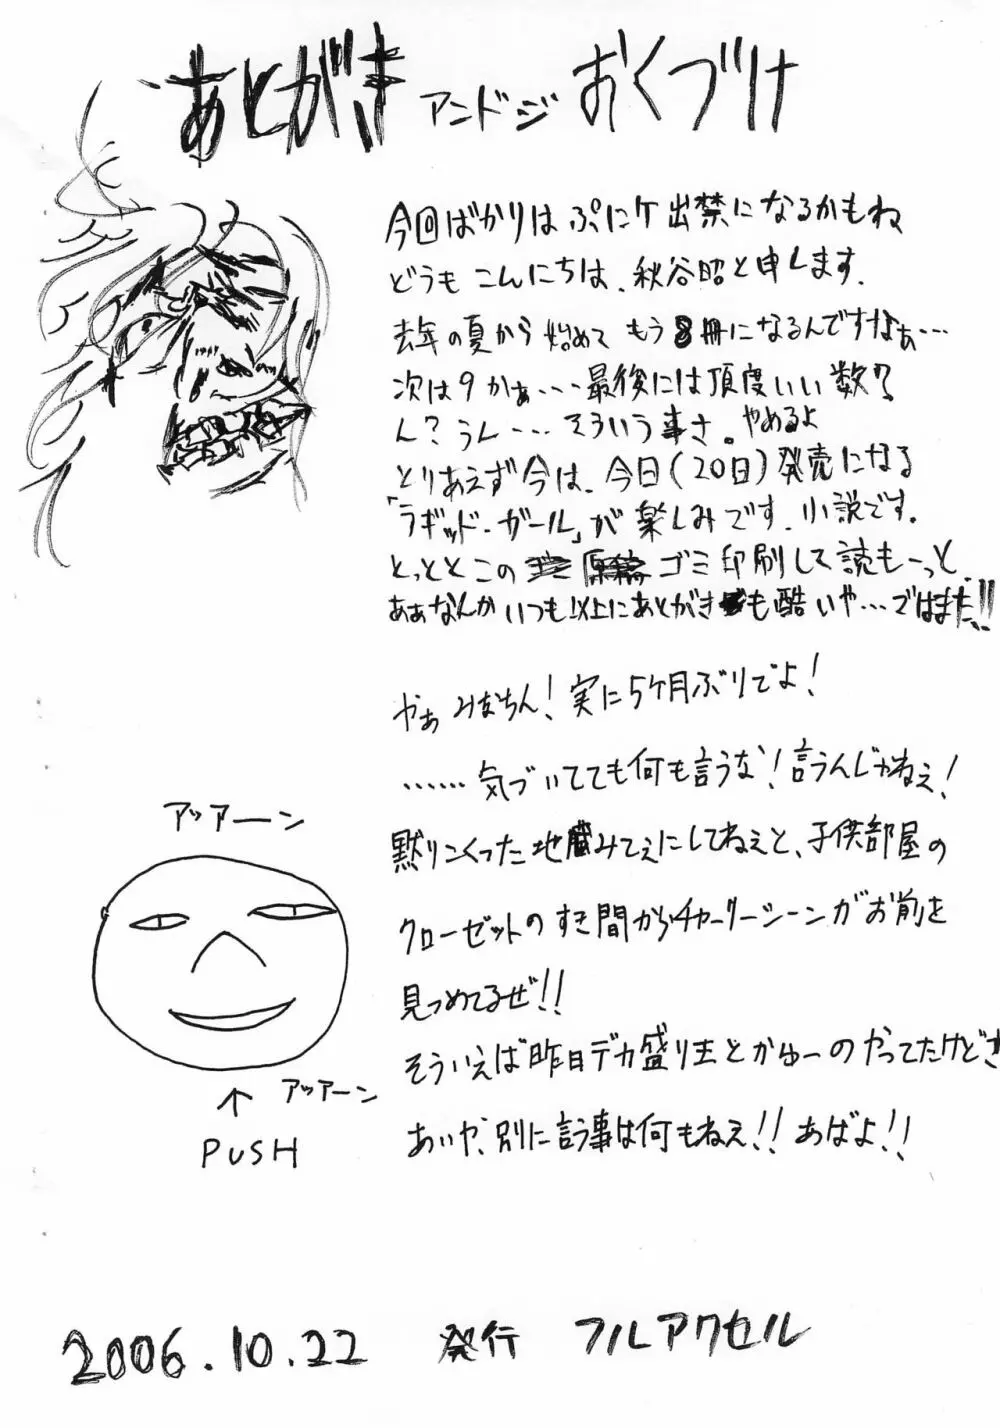 あとがき アンドジ おくづけ
今回ばかりは ぷにケ 出禁になるかもね
どうも こんにちは、秋谷昭と申します.
去年の夏から 始めて もう8冊になるんですなぁ…
次は9かぁ… 最後には頂度いい数?
ん? うん…… そういう事さ。やめるよ
とりあえず今は、今日(20日)発売になる
「ラギッド・ガール」が楽しみです. 小説です。
とっととこの 原稿 ゴミ印刷して読もーっと.
あぁなんかいつも以上にあとがきも酷いや…ではまた!!
やぁ みなちん! 実に5ヶ月ぶりでよ!
……気づいてても何も言うな! 言うんじゃねぇ!
黙りこくった地蔵みてぇにしてねぇと、子供部屋の
クローゼットのすき間からチャーリーシーンがお前を
見つめてるぜ!!
そういえば昨日デカ盛り王とかゆーのやってたけどさ
あいや、別に言う事は何もねえ!! あばよ!!
アッアーン
アッアーン
PUSH
2006.10.22 発行 フルアクセル